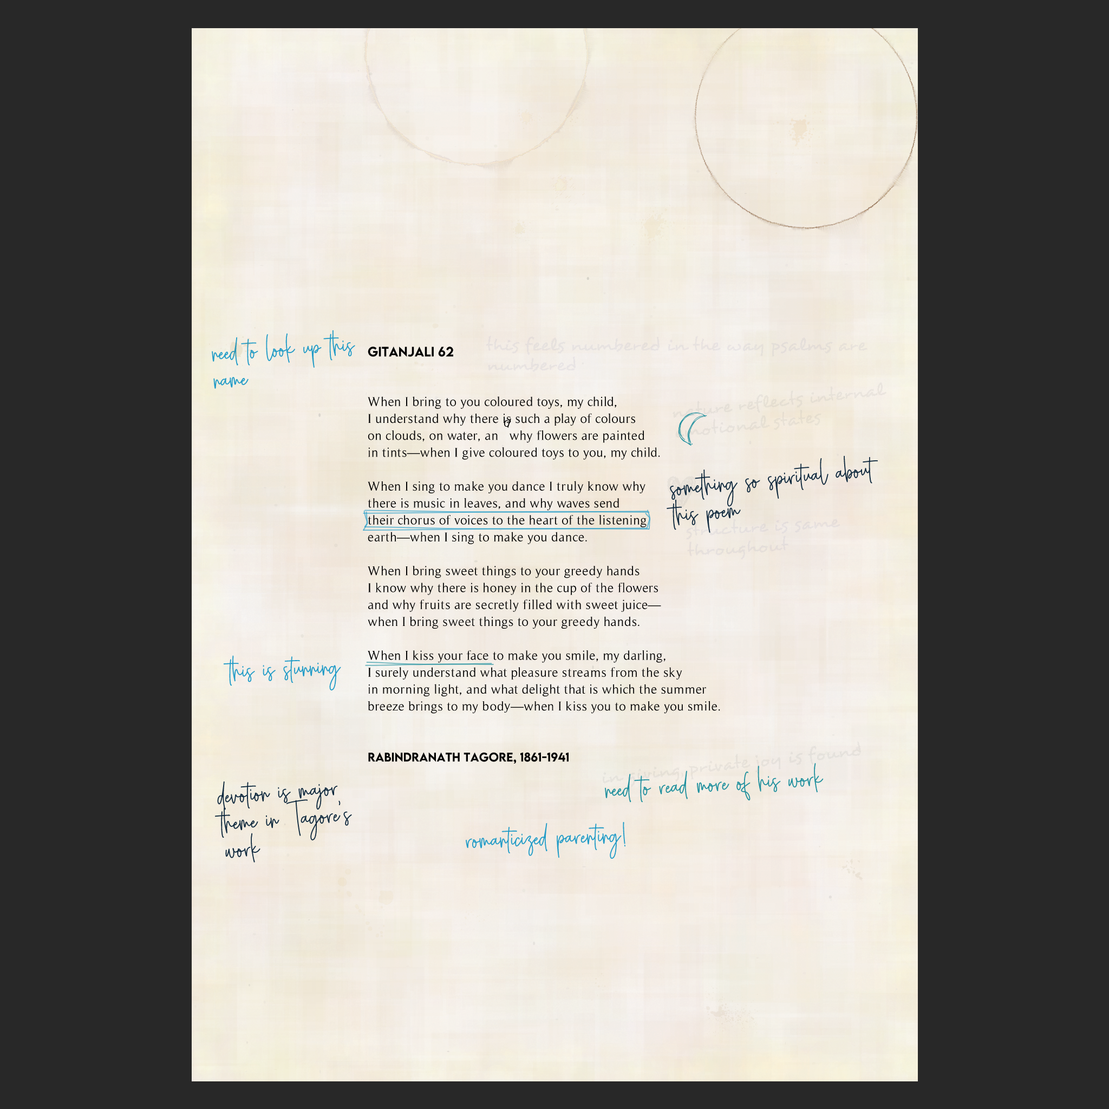 need to look up this
name
GITANJALI 62
this feels numbered in the way psalms are
numbered
When I bring to you coloured toys, my child,
I understand why there is such a play of colours
on clouds, on water, an why flowers are painted
in tints—when I give coloured toys to you, my child.
nature reflects internal
emotional states
When I sing to make you dance I truly know why
there is music in leaves, and why waves send
their chorus of voices to the heart of the listening
earth—when I sing to make you dance.
something so spiritual about
this poem
structure is same
throughout
When I bring sweet things to your greedy hands
I know why there is honey in the cup of the flowers
and why fruits are secretly filled with sweet juice—
when I bring sweet things to your greedy hands.
this is stunning
When I kiss your face to make you smile, my darling,
I surely understand what pleasure streams from the sky
in morning light, and what delight that is which the summer
breeze brings to my body—when I kiss you to make you smile.
RABINDRANATH TAGORE, 1861-1941
in giving, private joy is found
need to read more of his work
devotion is major
theme in Tagore's
work
romanticized parenting!